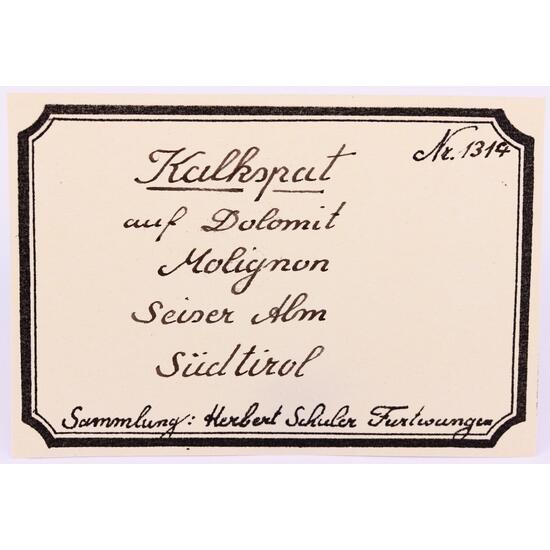 Nr. 1314
Kalkspat
auf Dolomit
Molignon
Seiser Alm
Südtirol
Sammlung: Herbert Schuler Furtwangen